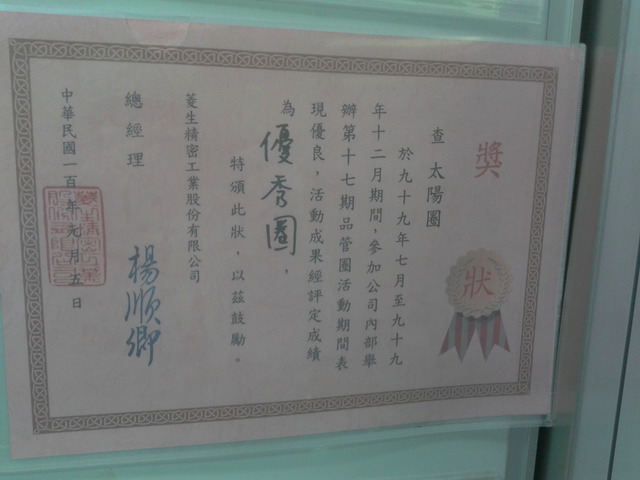 獎狀
查 太陽圈
於九十九年七月至九十九
年十二月期間，參加公司內部舉
辦第十七期品管圈活動期間表
現優良，活動成果經評定成績
為優秀圈，
特頒此狀，以茲鼓勵。
菱生精密工業股份有限公司
總經理 楊順卿
中華民國一百年元月五日